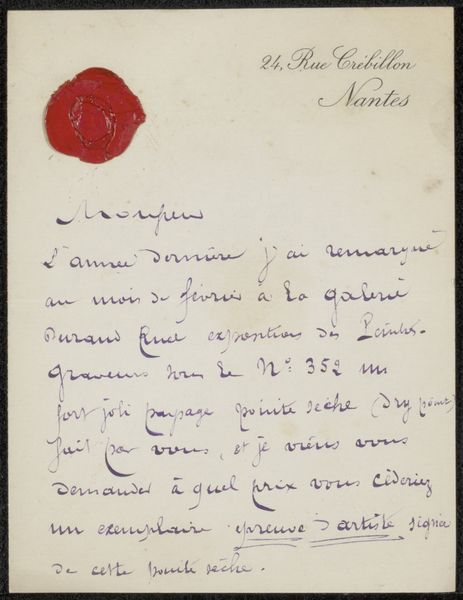 24, Rue Crébillon
Nantes
Monsieur
L'année dernière j'ai remarqué
au mois de février à la galerie
Durand Ruel exposition des Peintres-
Graveurs sous le N°: 352 un
fort joli paysage pointe sèche (Dry point)
fait par vous, et je viens vous
demander à quel prix vous cèderiez
un exemplaire épreuve d'artiste signée
de cette pointe sèche.